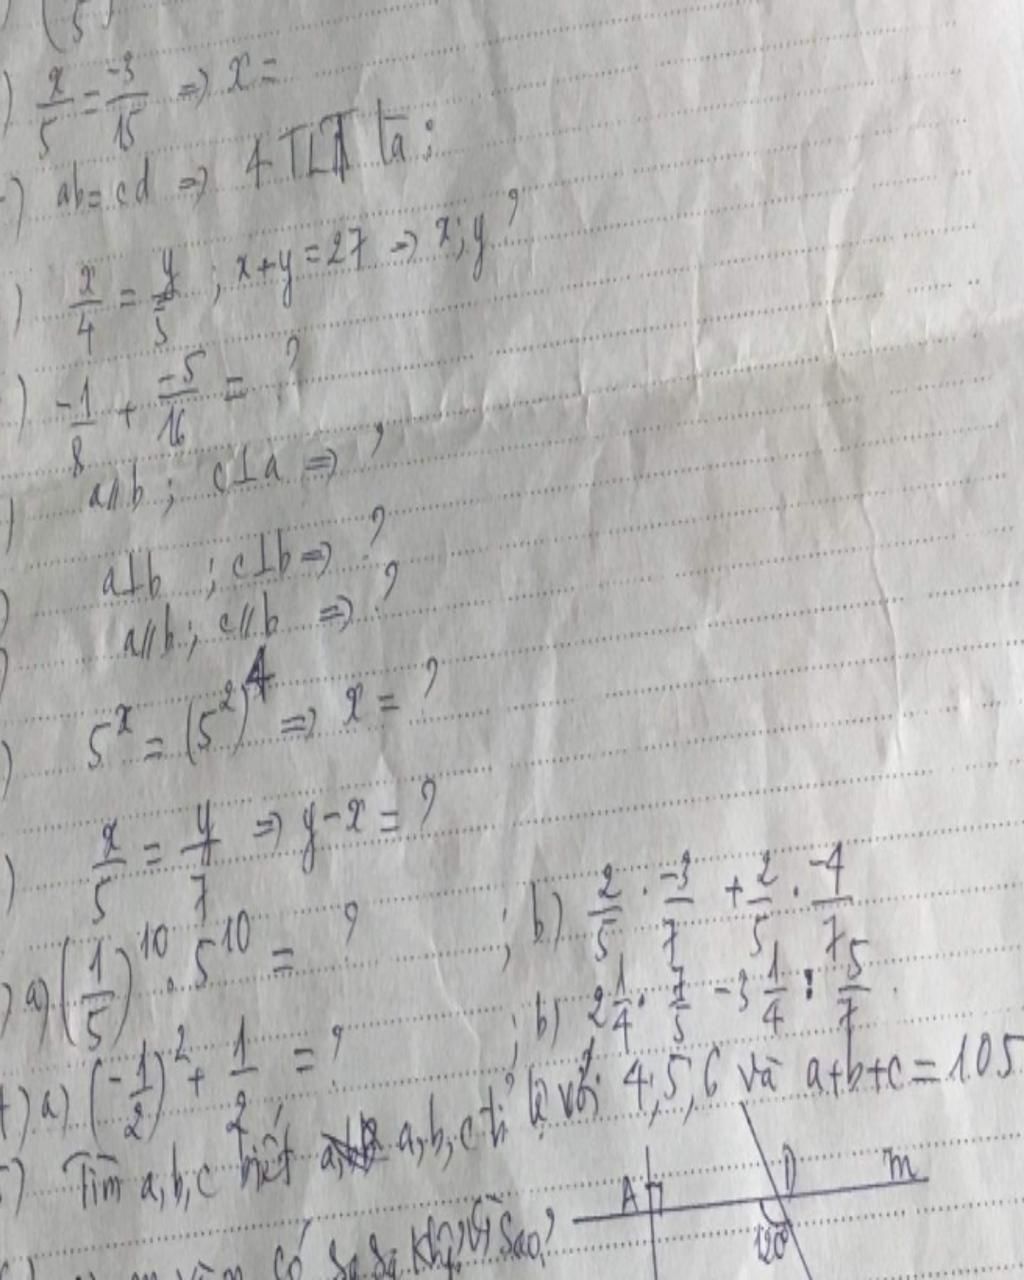 5)
) x/5 = -3/15 => x =
) ab = cd => 4 TLT là :
) x/4 = y/5 ; x+y = 27 => x; y ?
) -1/8 + -5/16 = ?
) a//b ; c⊥a => ?
) a⊥b ; c⊥b => ?
) a//b ; c//b => ?
) 5^x = (5^2)^4 => x = ?
) x/5 = y/7 => y-x = ?
) a) (1/5)^10 . 5^10 = ? ; b) 2/5 . -3/7 + 2/5 . -4/7
) a) (-1/2)^2 + 1/2 = ? ; b) 2 1/4 . 7/5 - 3 1/4 : 5/7 .
) Tìm a,b,c biết a,b,c tỉ lệ với 4,5,6 và a+b+c = 105
A D m
120°
có s.s kg? Vì sao?